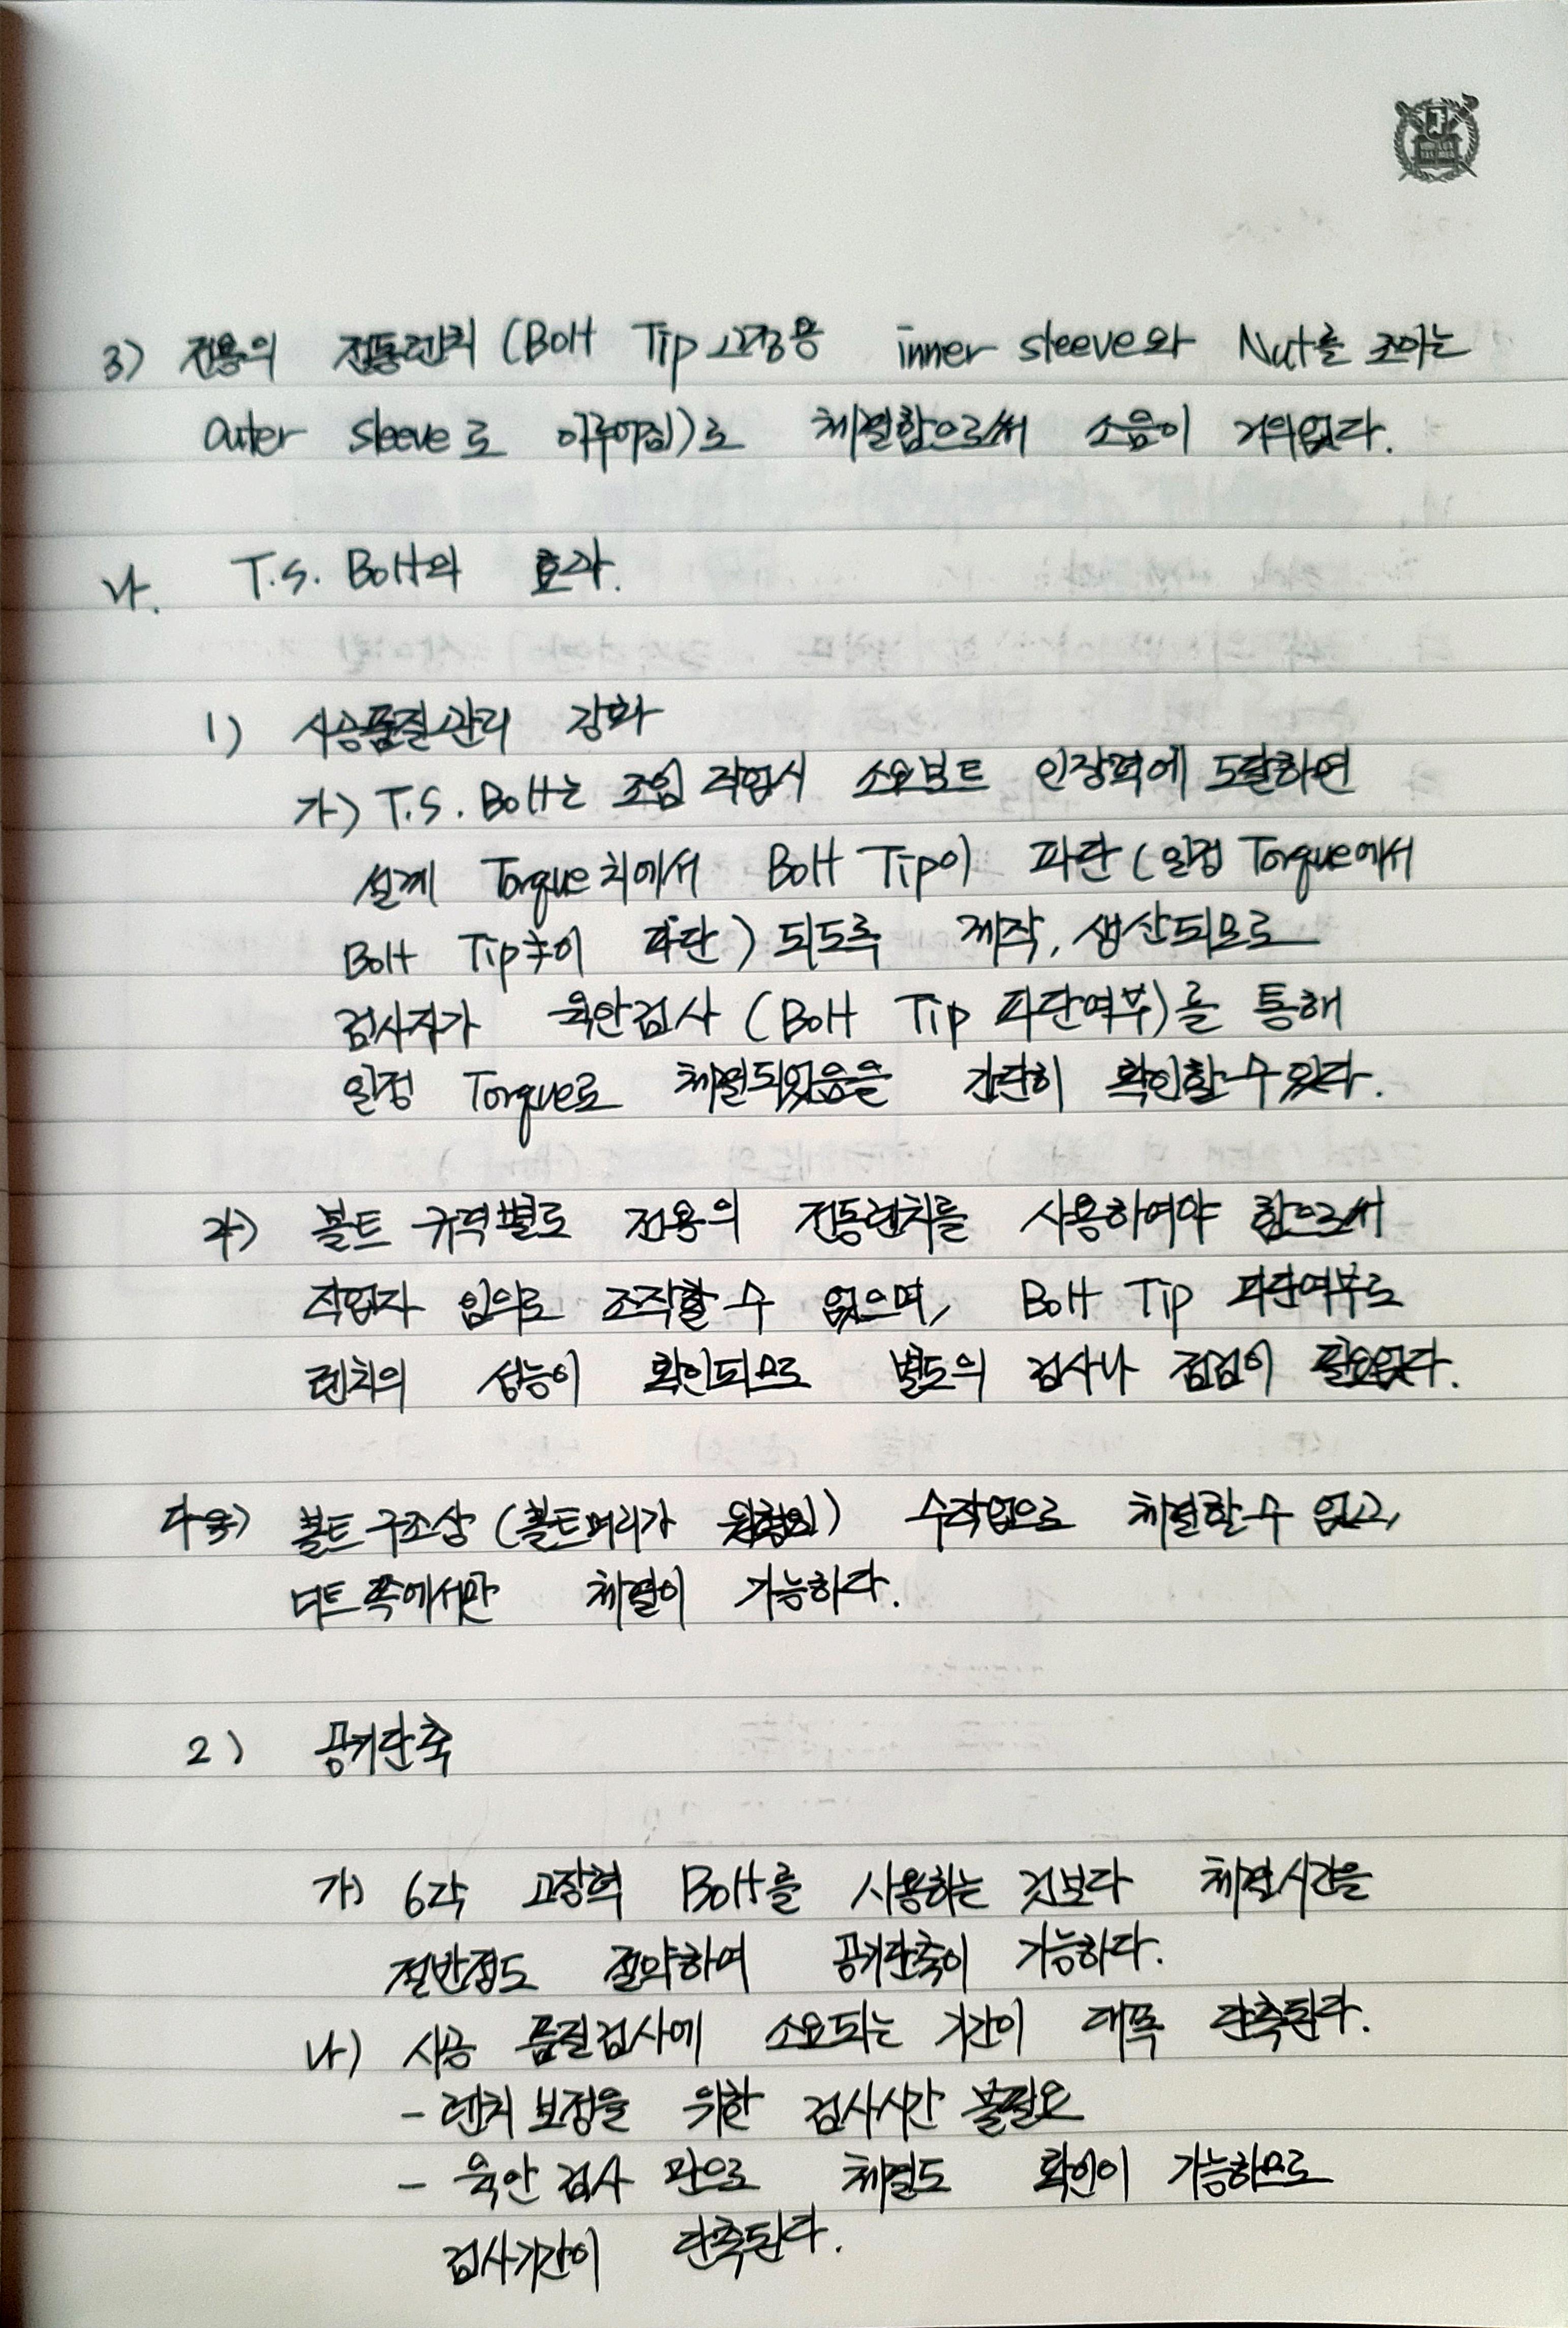 3) 전용의 전동렌치 (Bolt Tip 고정용 inner sleeve와 Nut를 조이는
outer sleeve로 이루어짐)로 체결함으로써 소음이 거의없다.
나. T.S. Bolt의 효과.
1) 시공품질관리 강화
가) T.S. Bolt는 조임 작업시 소요볼트 인장력에 도달하면
설계 Torque치에서 Bolt Tip이 파단 (일정 Torque에서
Bolt Tip부이 파단) 되도록 제작, 생산되므로
검사자가 육안검사 (Bolt Tip 파단여부)를 통해
일정 Torque로 체결되었음을 간단히 확인할 수 있다.
나) 볼트 규격별로 전용의 전동렌치를 사용하여야 함으로써
작업자 임의로 조작할 수 없으며, Bolt Tip 파단여부로
렌치의 성능이 확인되므로 별도의 검사나 점검이 필요없다.
다) 볼트구조상 (볼트머리가 원형임) 수작업으로 체결할 수 없고,
너트쪽에서만 체결이 가능하다.
2) 공기단축
가) 6각 고장력 Bolt를 사용하는 것보다 체결시간을
절반정도 절약하여 공기단축이 가능하다.
나) 시공 품질검사에 소요되는 기간이 대폭 단축된다.
- 렌치 보정을 위한 검사시간 불필요
- 육안 검사 만으로 체결도 확인이 가능하므로
검사기간이 단축된다.